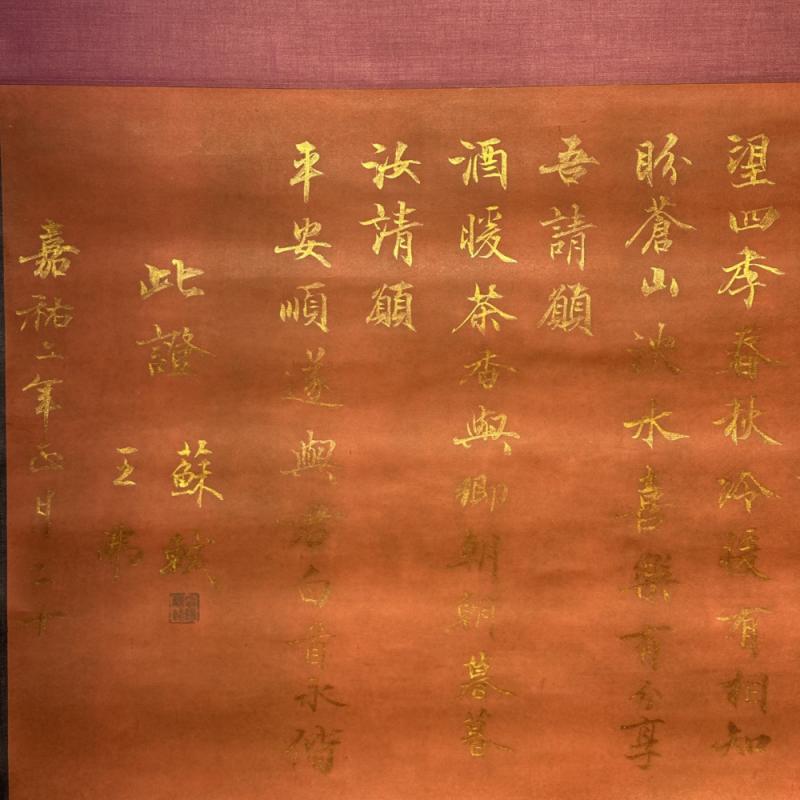 望四季春秋冷暖有相知
盼蒼山淡水喜樂有分享
吾請願
酒暖茶香與卿朝朝暮暮
汝請願
平安順遂與君白首永偕
此證
蘇軾
王弗
嘉祐二年正月二十